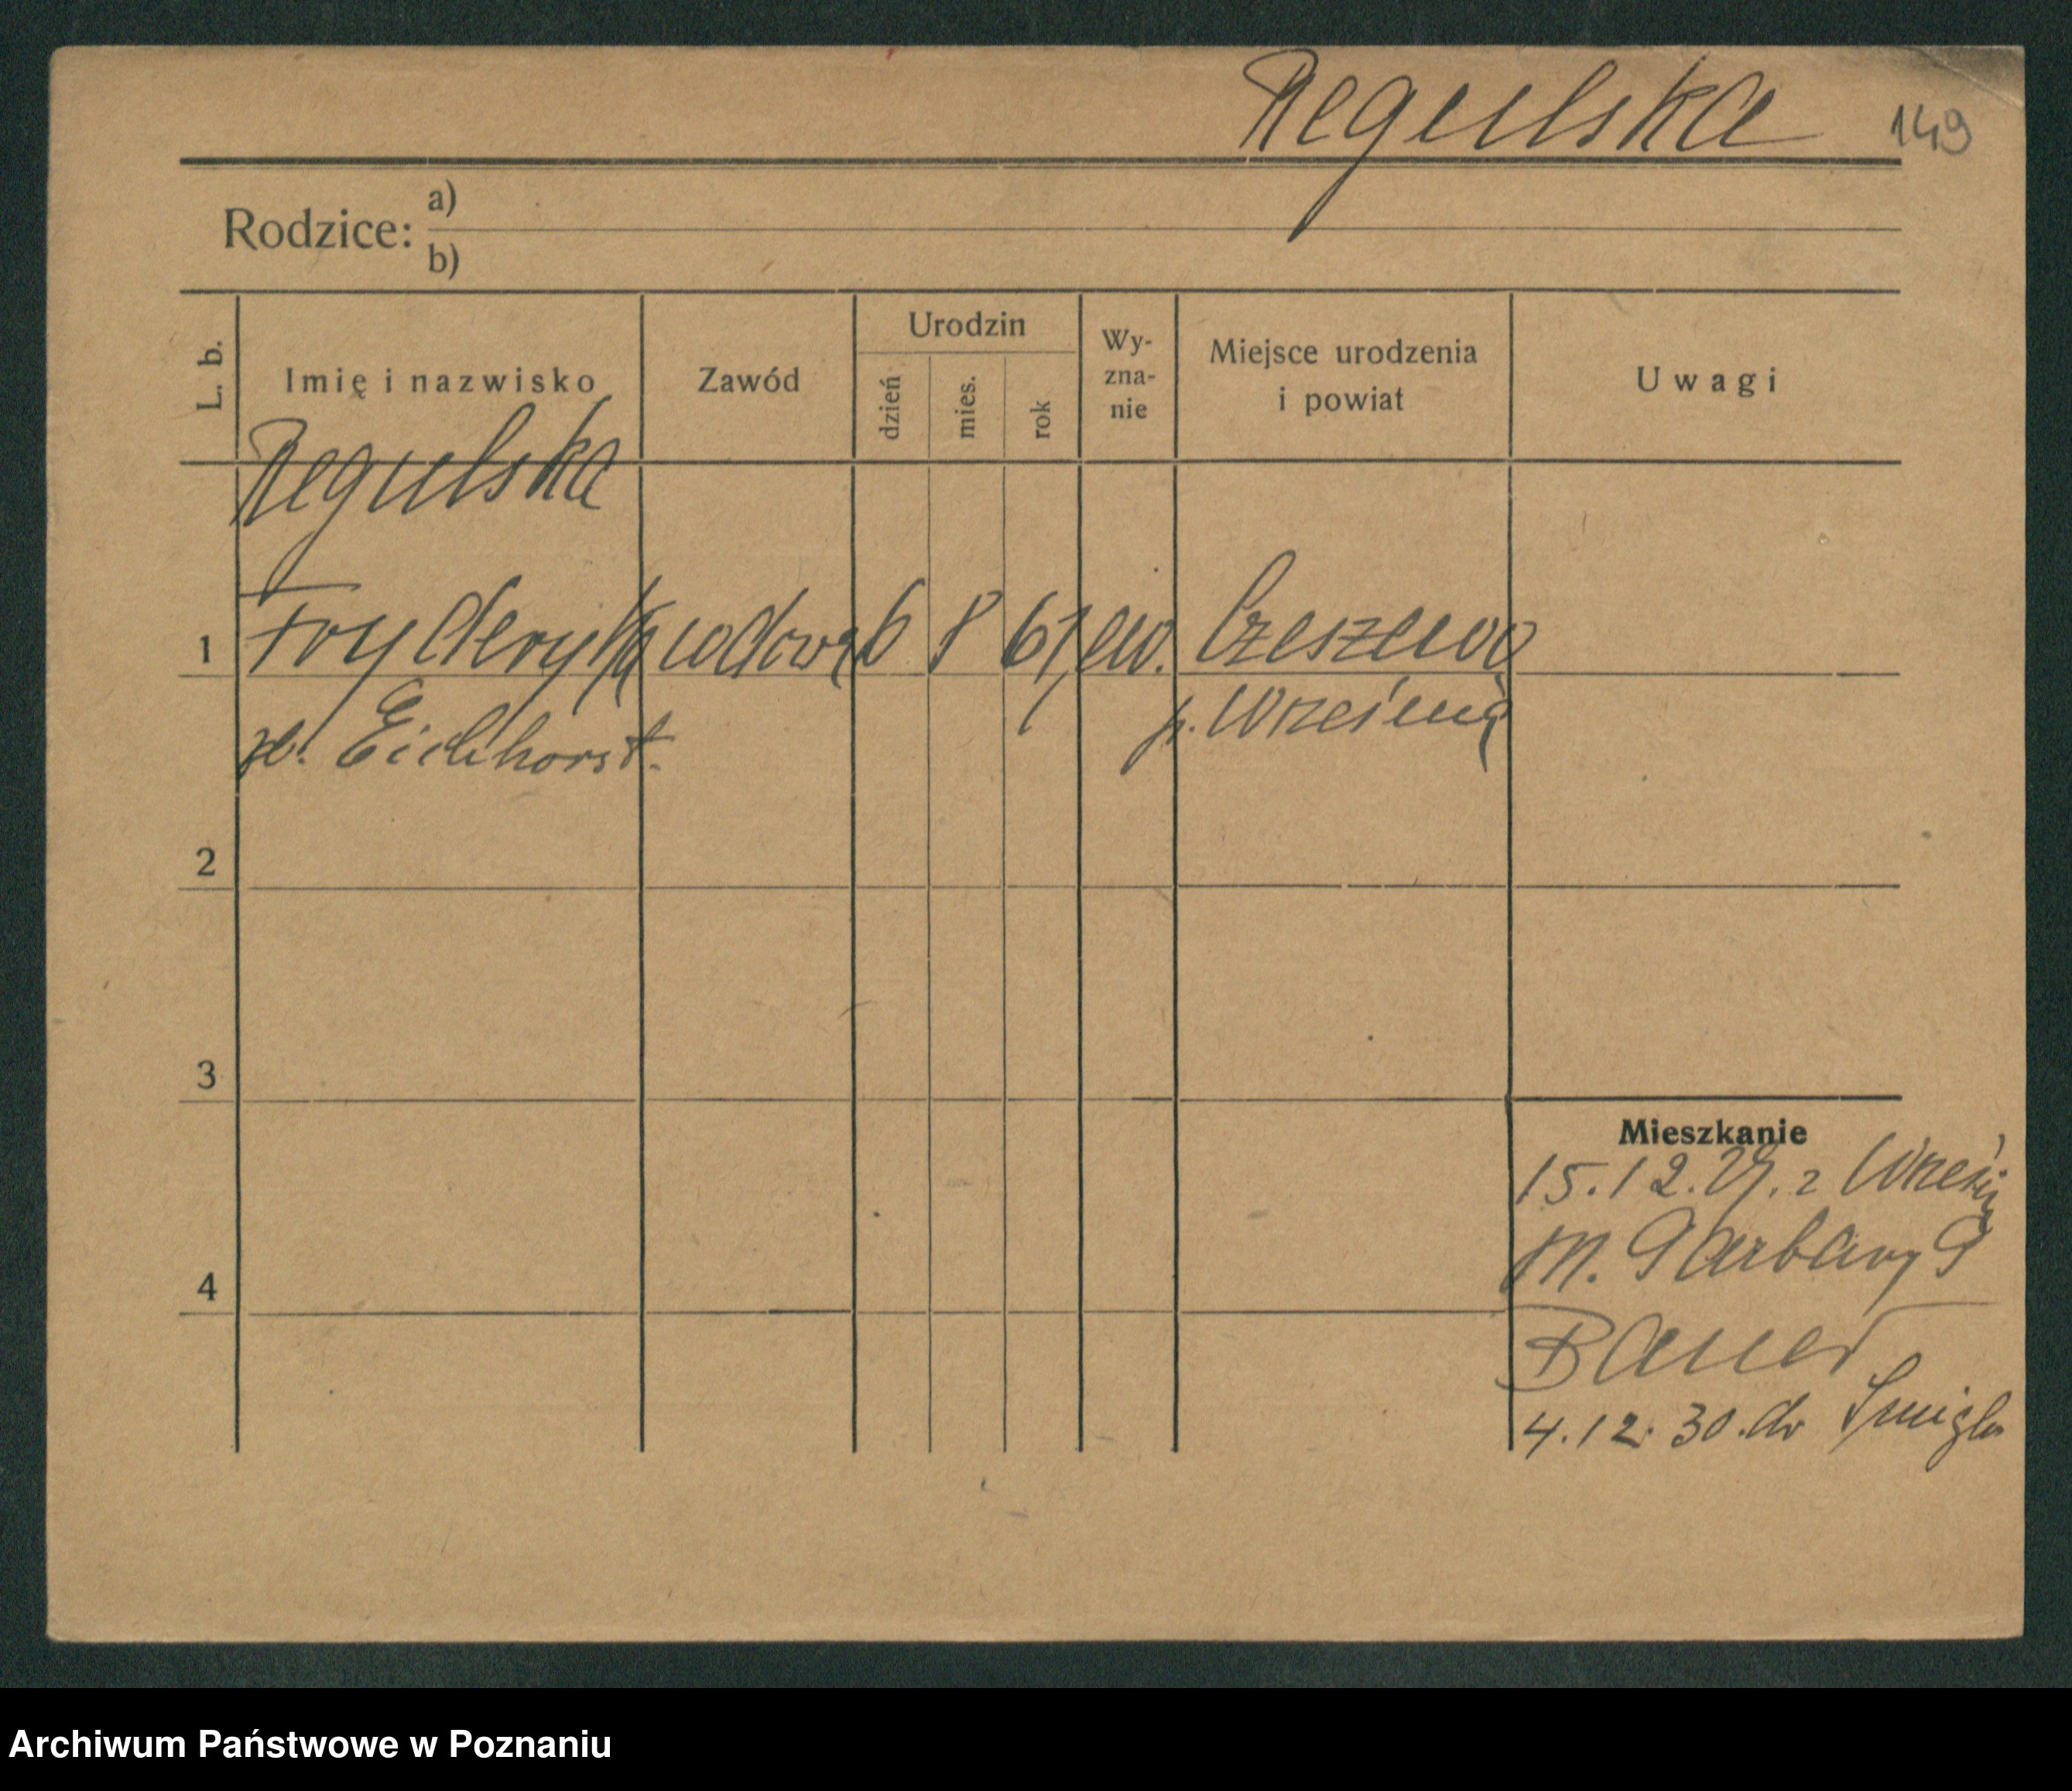 Regulska 149
Rodzice: a)
b)
L. b. Imię i nazwisko Zawód Urodzin dzień mies. rok Wy-zna-nie Miejsce urodzenia i powiat Uwagi
Regulska
1 Fryderyka wdowa 6 8 61 ew. Czeszewo
Eichhorst. p. Września
2
3
Mieszkanie
15.12.29. z Wrześni
4 M. Garbary 9
Bauer
4.12.30. do Śmigla
Archiwum Państwowe w Poznaniu